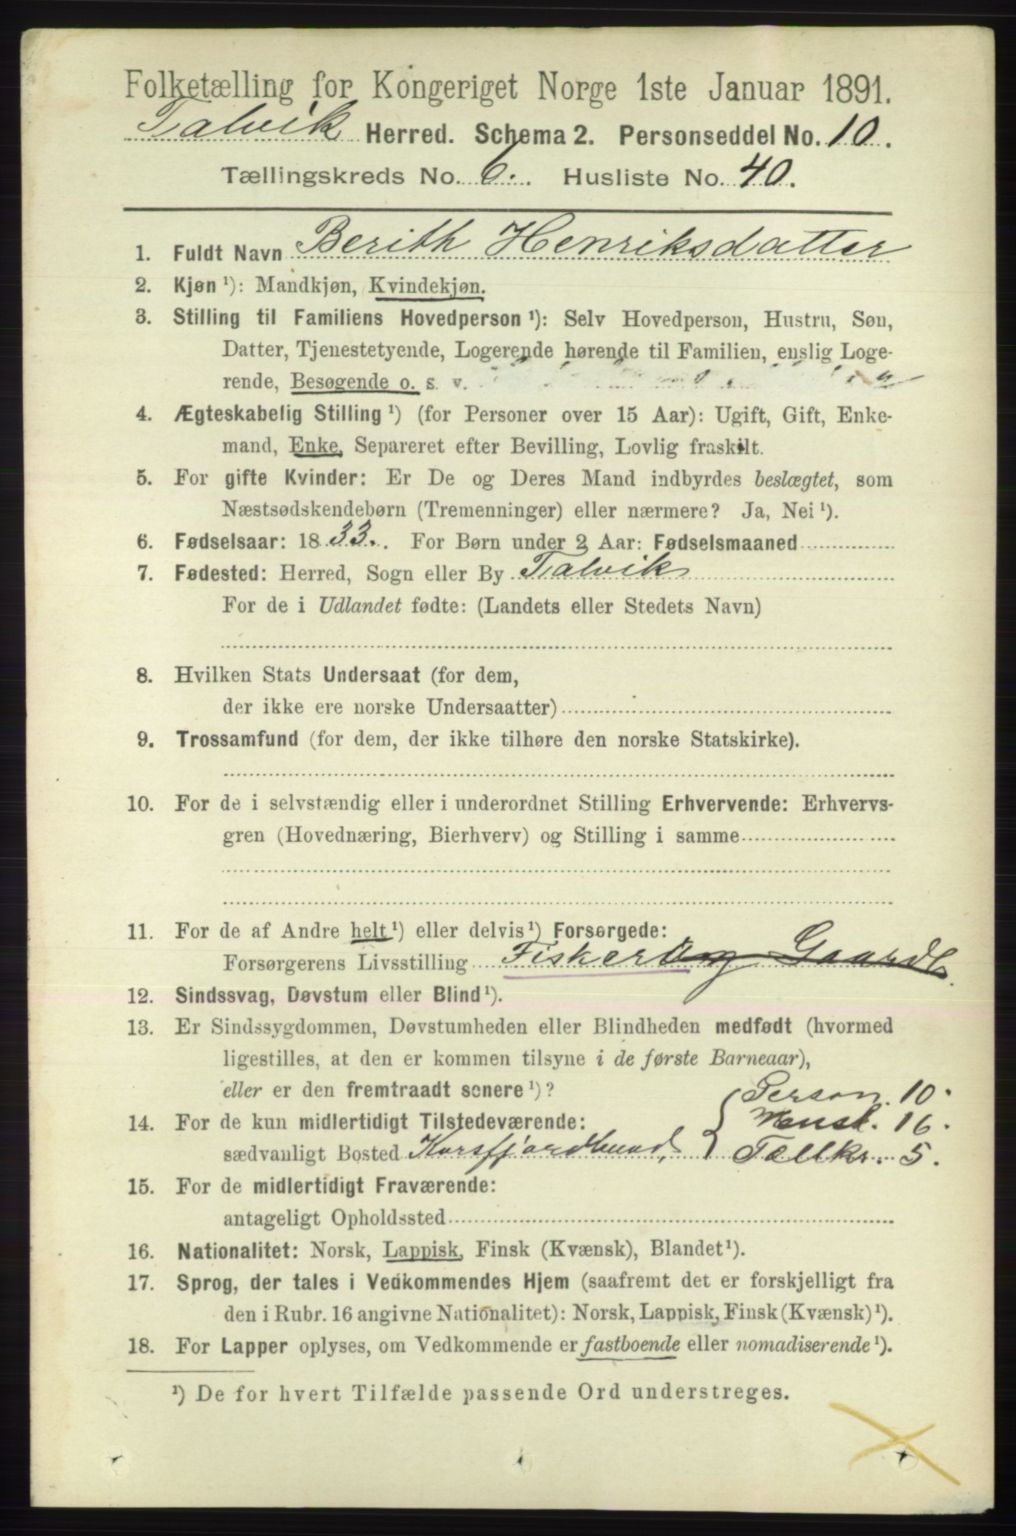 Folketælling for Kongeriget Norge 1ste Januar 1891.
Talvik Herred. Schema 2. Personseddel No. 10.
Tællingskreds No. 6. Husliste No. 40.
1. Fuldt Navn Berith Henriksdatter
2. Kjøn ¹): Mandkjøn, Kvindekjøn.
3. Stilling til Familiens Hovedperson ¹): Selv Hovedperson, Hustru, Søn,
Datter, Tjenestetyende, Logerende hørende til Familien, enslig Loge-
rende, Besøgende o. s. v.
4. Ægteskabelig Stilling ¹) (for Personer over 15 Aar): Ugift, Gift, Enke-
mand, Enke, Separeret efter Bevilling, Lovlig fraskilt.
5. For gifte Kvinder: Er De og Deres Mand indbyrdes beslægtet, som
Næstsødskendebørn (Tremenninger) eller nærmere? Ja, Nei ¹).
6. Fødselsaar: 1833. For Børn under 2 Aar: Fødselsmaaned
7. Fødested: Herred, Sogn eller By Talvik
For de i Udlandet fødte: (Landets eller Stedets Navn)
8. Hvilken Stats Undersaat (for dem,
der ikke ere norske Undersaatter)
9. Trossamfund (for dem, der ikke tilhøre den norske Statskirke).
10. For de i selvstændig eller i underordnet Stilling Erhvervende: Erhvervs-
gren (Hovednæring, Bierhverv) og Stilling i samme
11. For de af Andre helt ¹) eller delvis ¹) Forsørgede:
Forsørgerens Livsstilling Fisker og Gaardb.
12. Sindssvag, Døvstum eller Blind ¹).
13. Er Sindssygdommen, Døvstumheden eller Blindheden medfødt (hvormed
ligestilles, at den er kommen tilsyne i de første Barneaar),
eller er den fremtraadt senere ¹)?
Person. 10.
14. For de kun midlertidigt Tilstedeværende: Husl. 16.
sædvanligt Bosted Korsfjordbund, Tællkr. 5.
15. For de midlertidigt Fraværende:
antageligt Opholdssted
16. Nationalitet: Norsk, Lappisk, Finsk (Kvænsk), Blandet ¹).
17. Sprog, der tales i Vedkommendes Hjem (saafremt det er forskjelligt fra
den i Rubr. 16 angivne Nationalitet): Norsk, Lappisk, Finsk (Kvænsk) ¹).
18. For Lapper oplyses, om Vedkommende er fastboende eller nomadiserende ¹).
¹) De for hvert Tilfælde passende Ord understreges.